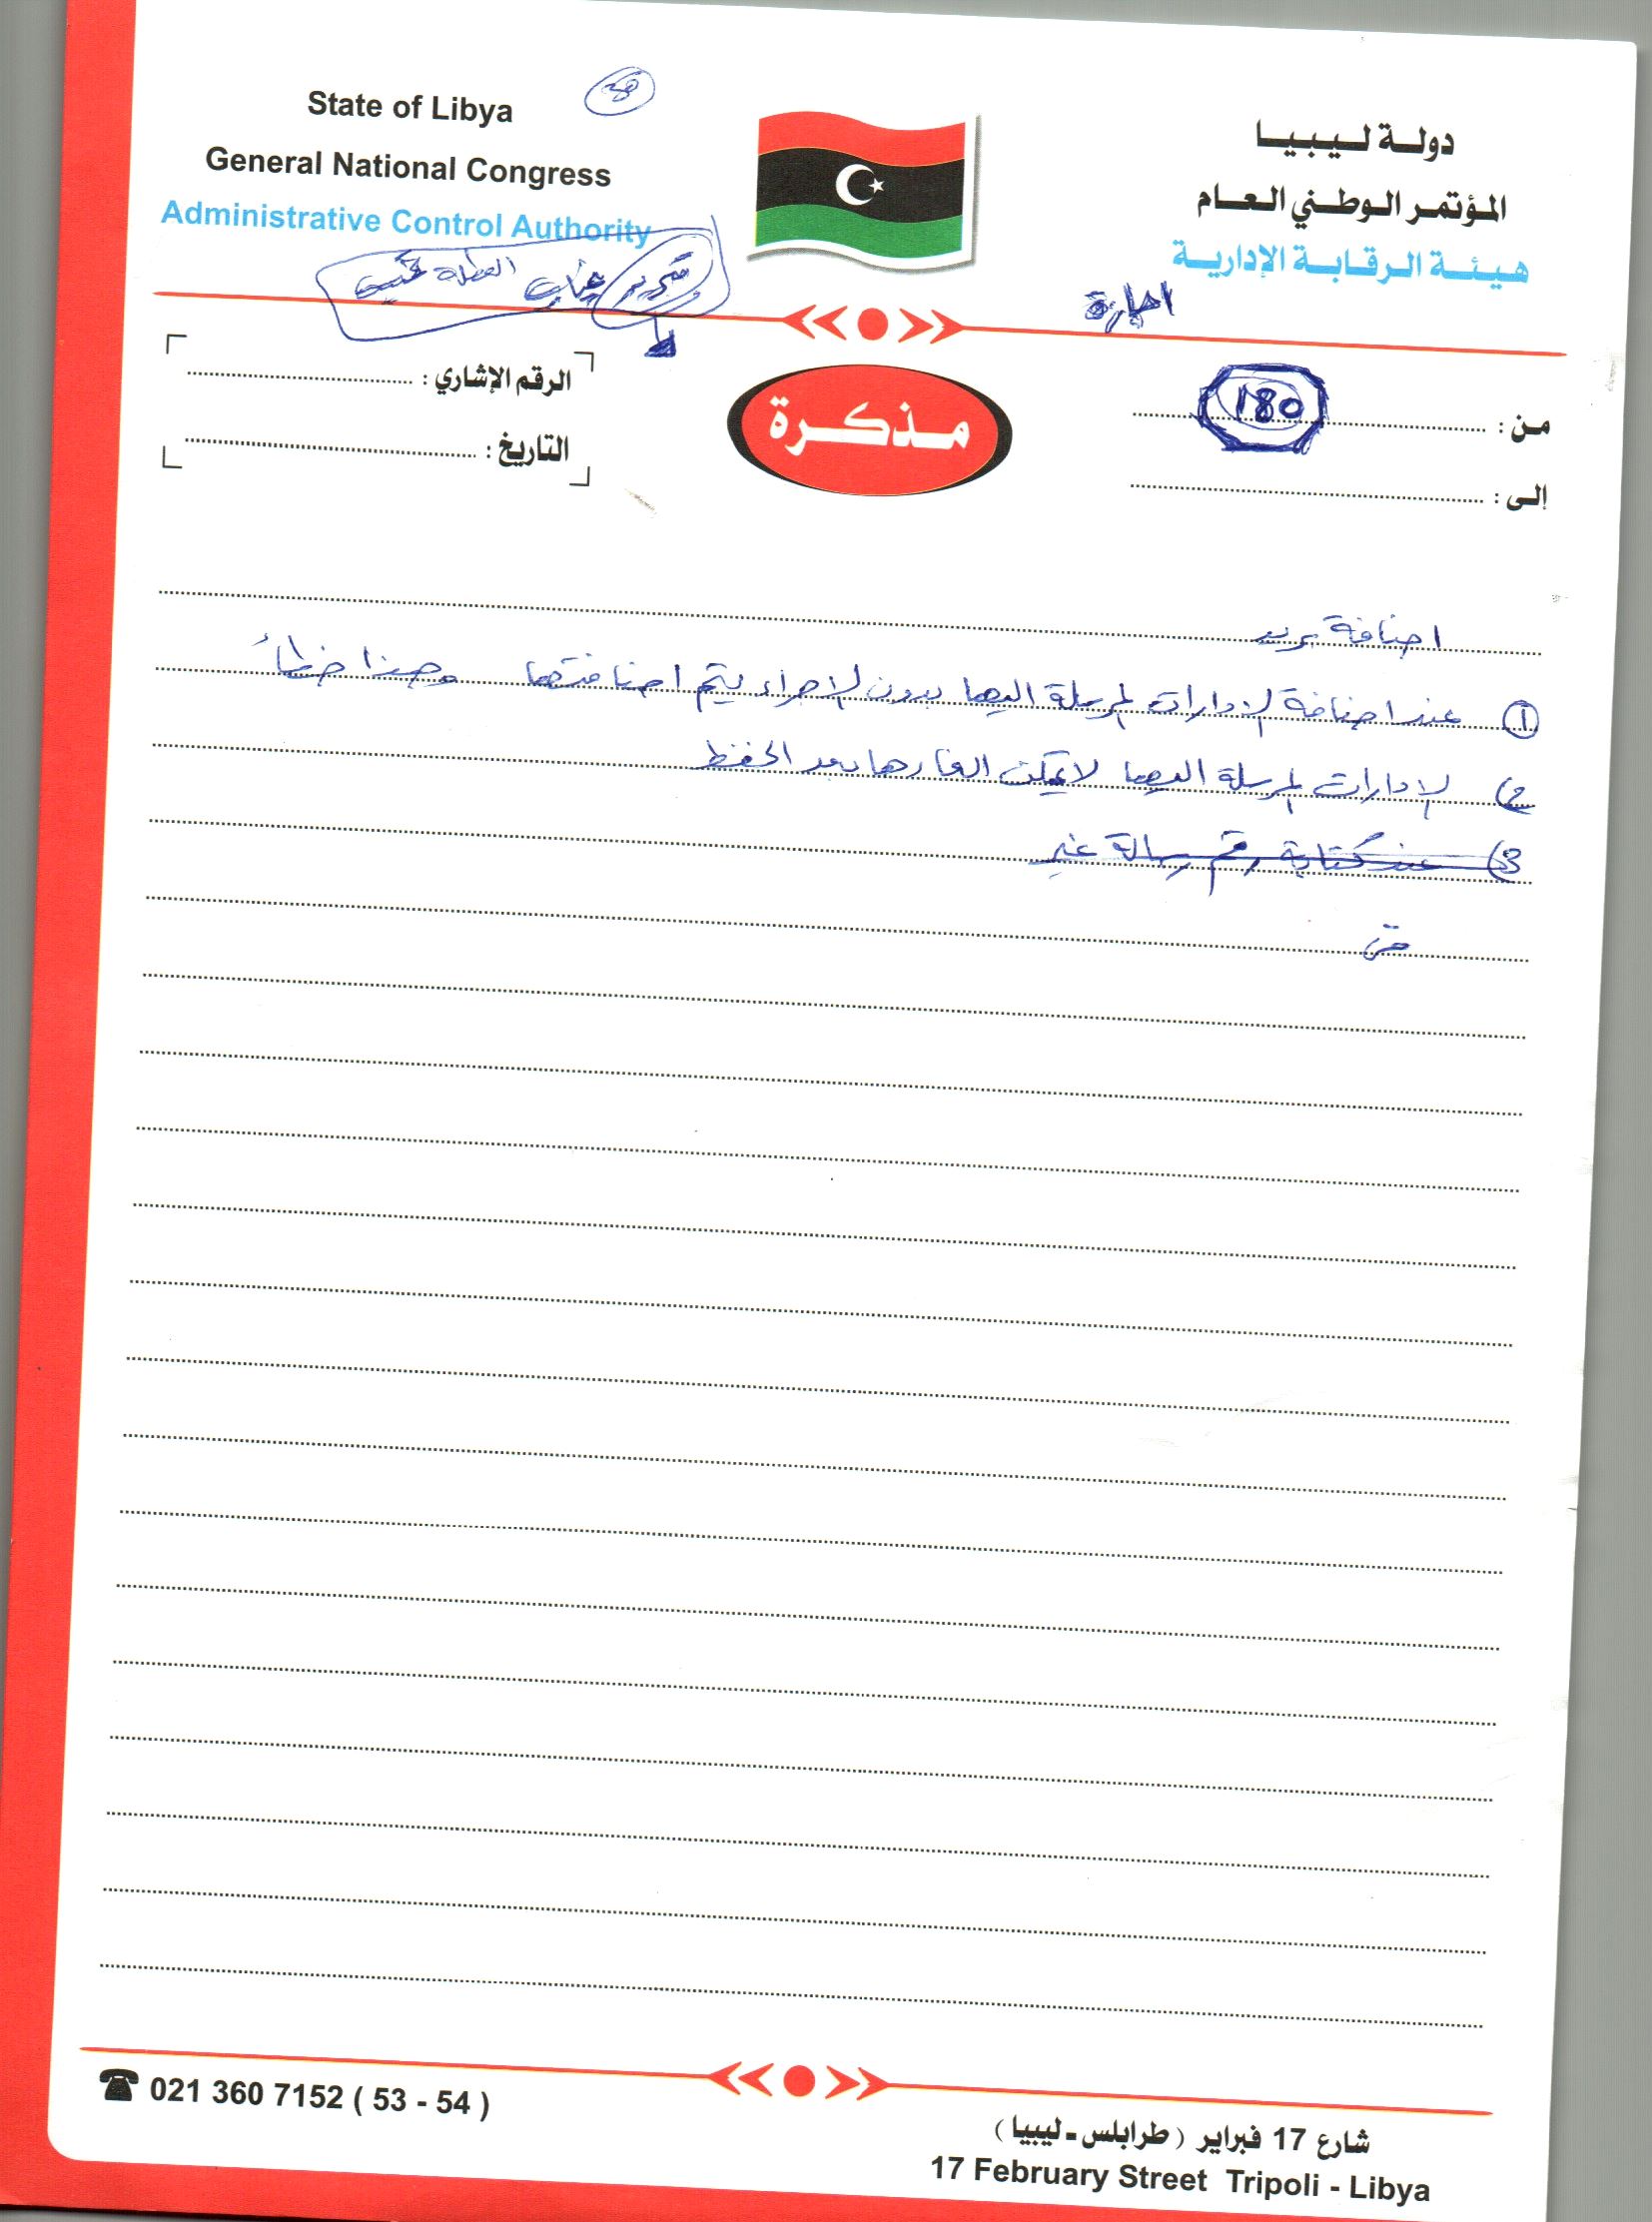 State of Libya
General National Congress
Administrative Control Authority
دولة ليبيا
المؤتمر الوطني العام
هيئة الرقابة الإدارية
اجازة
تقرير غياب العطلة
من : 180
إلى :
مذكرة
الرقم الإشاري :
التاريخ :
اضافة بريد
1 عند اضافة الادارات المرسلة اليها بدون الاجراء يتم اضافتها وهذا خطأ
2) الادارات المرسلة اليها لا يمكن الغارها بعد الحفظ
3) عند كتابة رقم رسالة غير
021 360 7152 ( 53 - 54 )
شارع 17 فبراير ( طرابلس - ليبيا )
17 February Street Tripoli - Libya